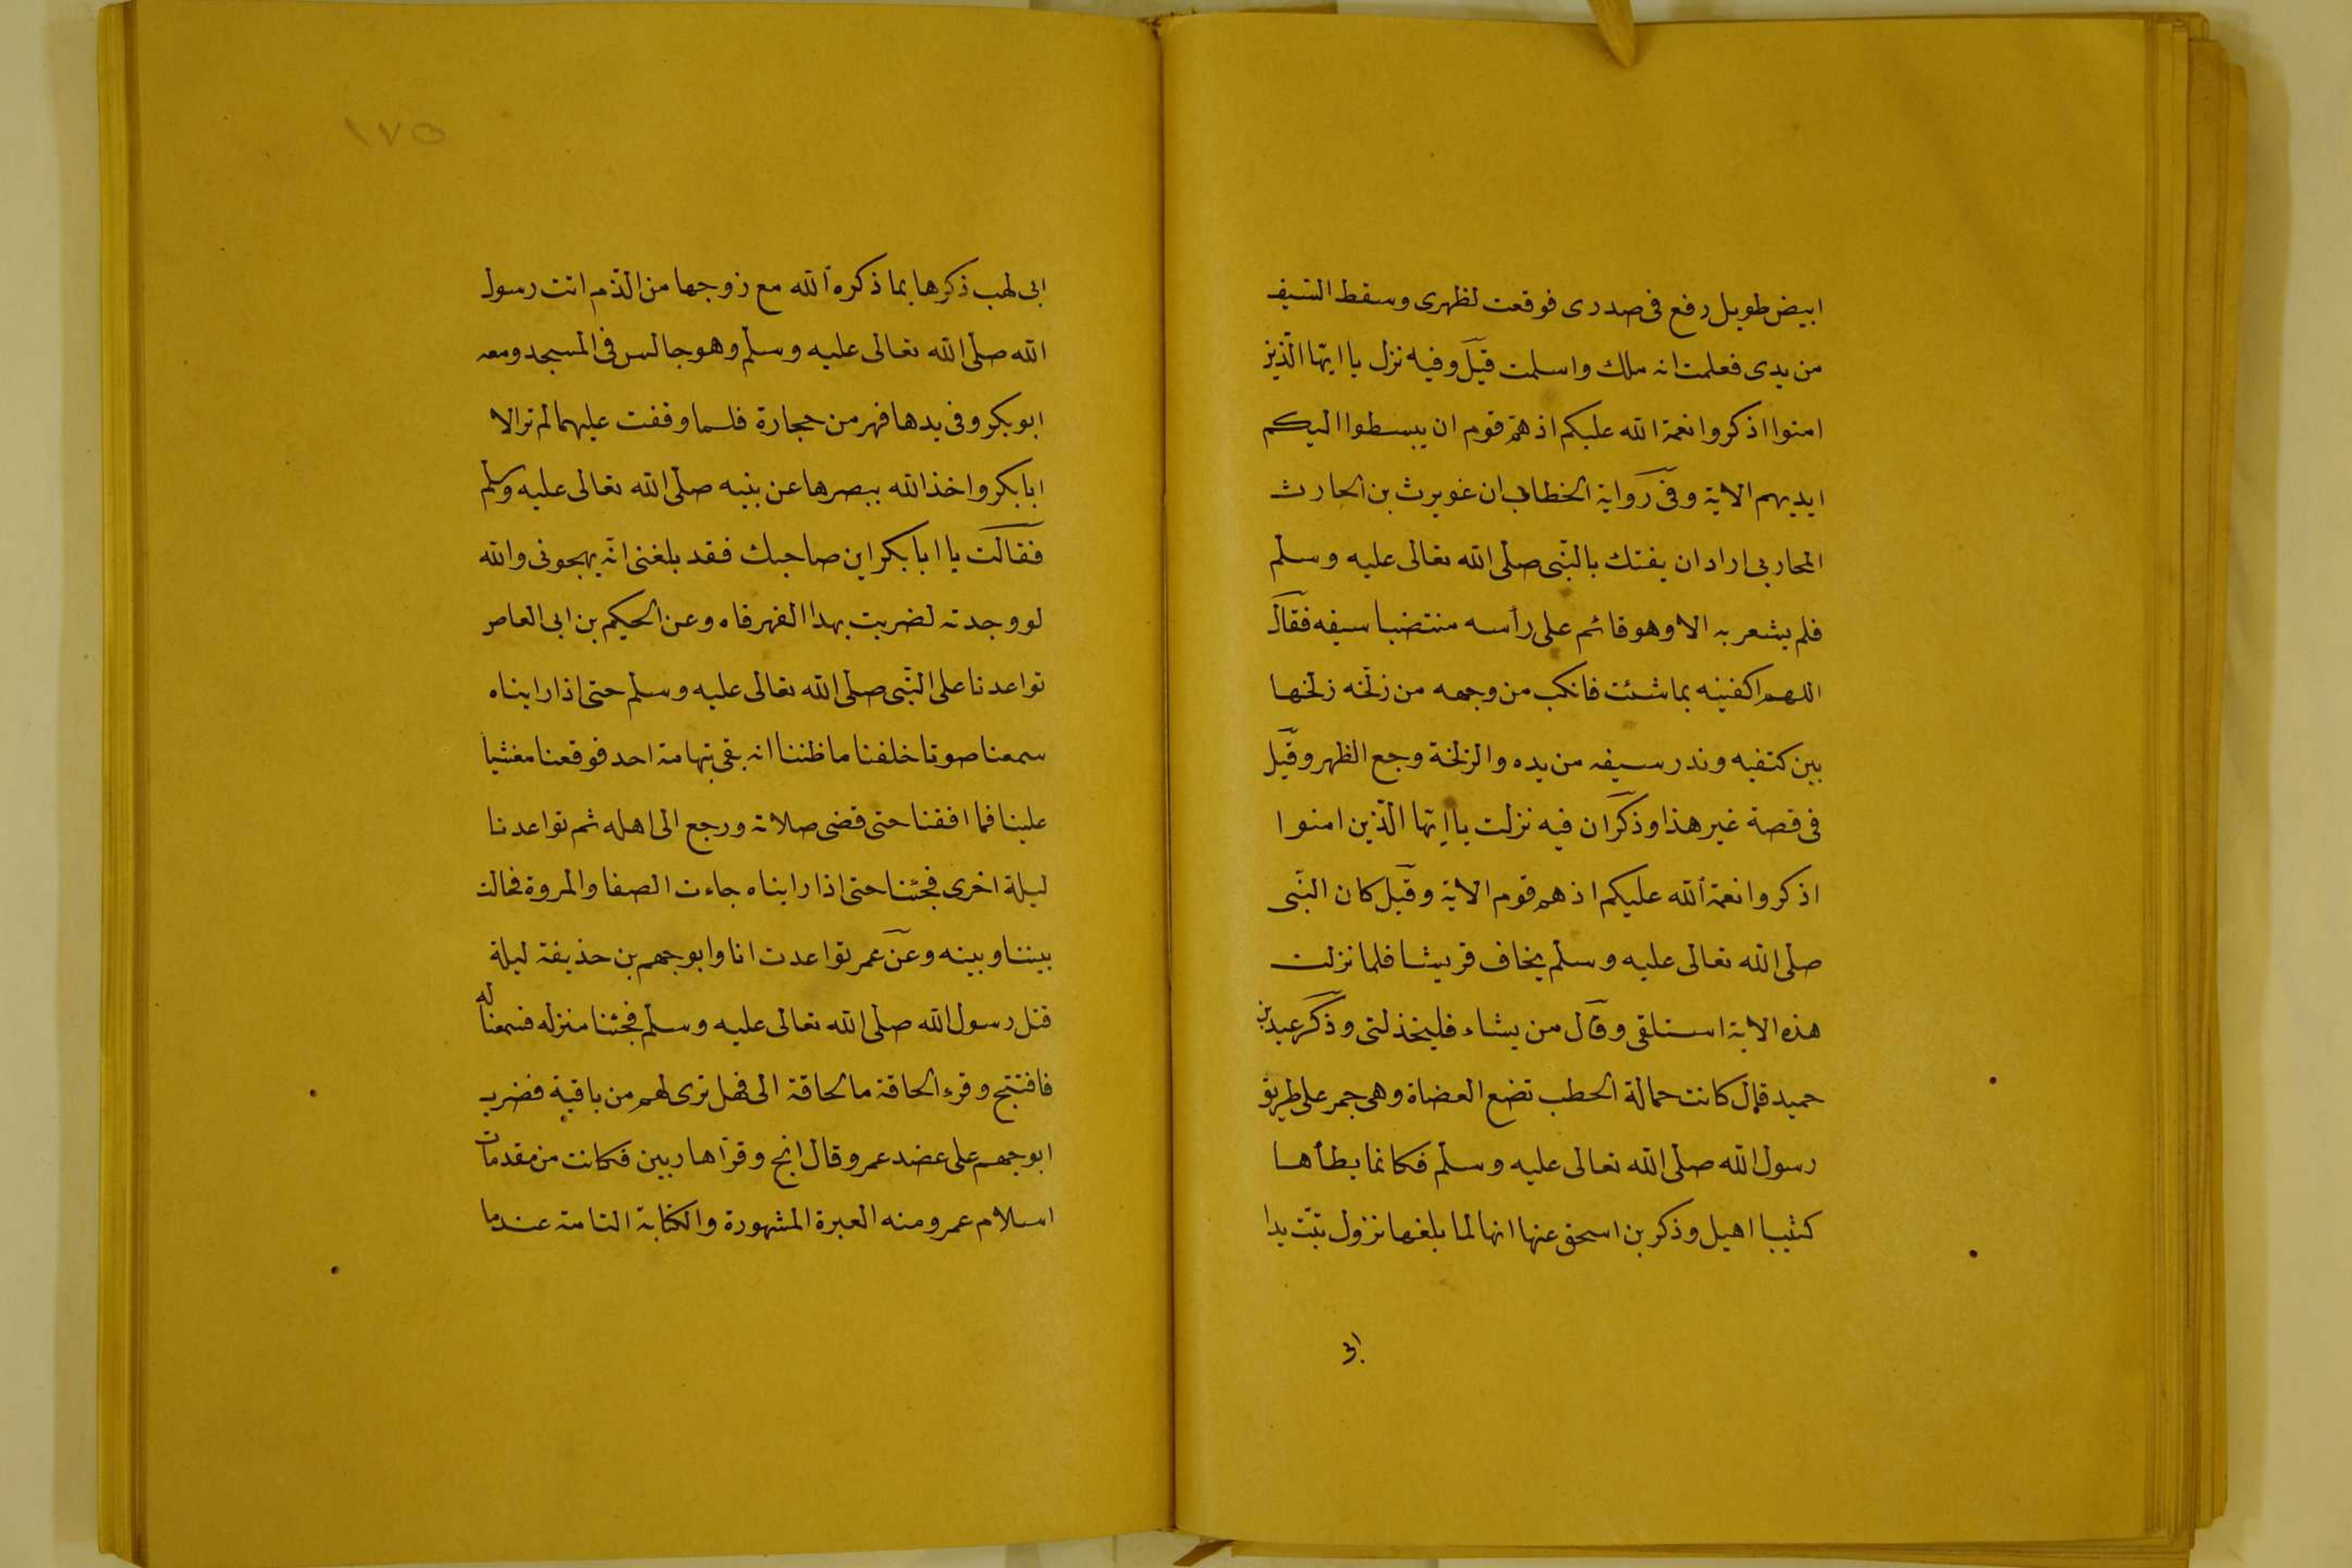 ابيض طويل رفع فى صدرى فوقعت لظهرى وسقط السّيف
من يدى فعلمت انه ملك واسلمت قيل وفيه نزل يا ايّها الّذين
امنوا اذكروا نعمة الله عليكم اذ همّ قوم ان يبسطوا اليكم
ايديهم الاية وفى رواية الخطابى ان غويرث بن الحارث
المحاربى اراد ان يفتك بالنّبى صلّى الله تعالى عليه وسلّم
فلم يشعر به الا وهو قائم على رأسه منتضيا سيفه فقال
اللهم اكفنيه بما شئت فانكب من وجهه من زلّخه زلّخها
بين كتفيه وندر سيفه من يده والزلخة وجع الظهر وقيل
فى قصة غير هذا وذكر ان فيه نزلت يا ايّها الّذين امنوا
اذكروا نعمة الله عليكم اذ هم قوم الاية وقيل كان النّبى
صلى الله تعالى عليه وسلم يخاف قريشا فلما نزلت
هذه الاية استلقى وقال من يشاء فليخذلنى وذكر عبد بن
حميد قال كانت حمالة الحطب تضع العضاة وهى جمر على طريق
رسول الله صلّى الله تعالى عليه وسلم فكانما يطأها
كثيبا اهيل وذكر بن اسحق عنها انها لما بلغها نزول تبّت يدا
ابى
١٧٥
ابى لهب ذكرها بما ذكره الله مع زوجها من الذّم اتت رسول
الله صلى الله تعالى عليه وسلّم وهو جالس فى المسجد ومعه
ابو بكر وفى يدها فهر من حجارة فلما وقفت عليهما لم تر الا
ابا بكر واخذ الله ببصرها عن بنيه صلّى الله تعالى عليه وسلم
فقالت يا ابا بكر اين صاحبك فقد بلغنى انّه يهجونى والله
لو وجدته لضربت بهذا الفهر فاه وعن الحيكم بن ابى العاص
تواعدنا على النّبى صلى الله تعالى عليه وسلم حتى اذا رايناه
سمعنا صوتا خلفنا ما ظننا انه بقى بتهامة احد فوقعنا مغشيا
علينا فما افقنا حتى قضى صلاته ورجع الى اهله ثم تواعدنا
ليلة اخرى فجئنا حتى اذا رايناه جاءت الصفا والمروة فحالت
بيننا وبينه وعن عمر تواعدت انا وابو جهم بن حذيفة ليلة
قتل رسول الله صلى الله تعالى عليه وسلم فجئنا منزله فسمعنا له
فافتتح وقرء الحاقة ما الحاقة الى فهل ترى لهم من باقية فضرب
ابو جهم على عضد عمر وقال انج وقرّا هاربين فكانت من مقدمات
اسلام عمر ومنه العبرة المشهورة والكفاية التامة عندما